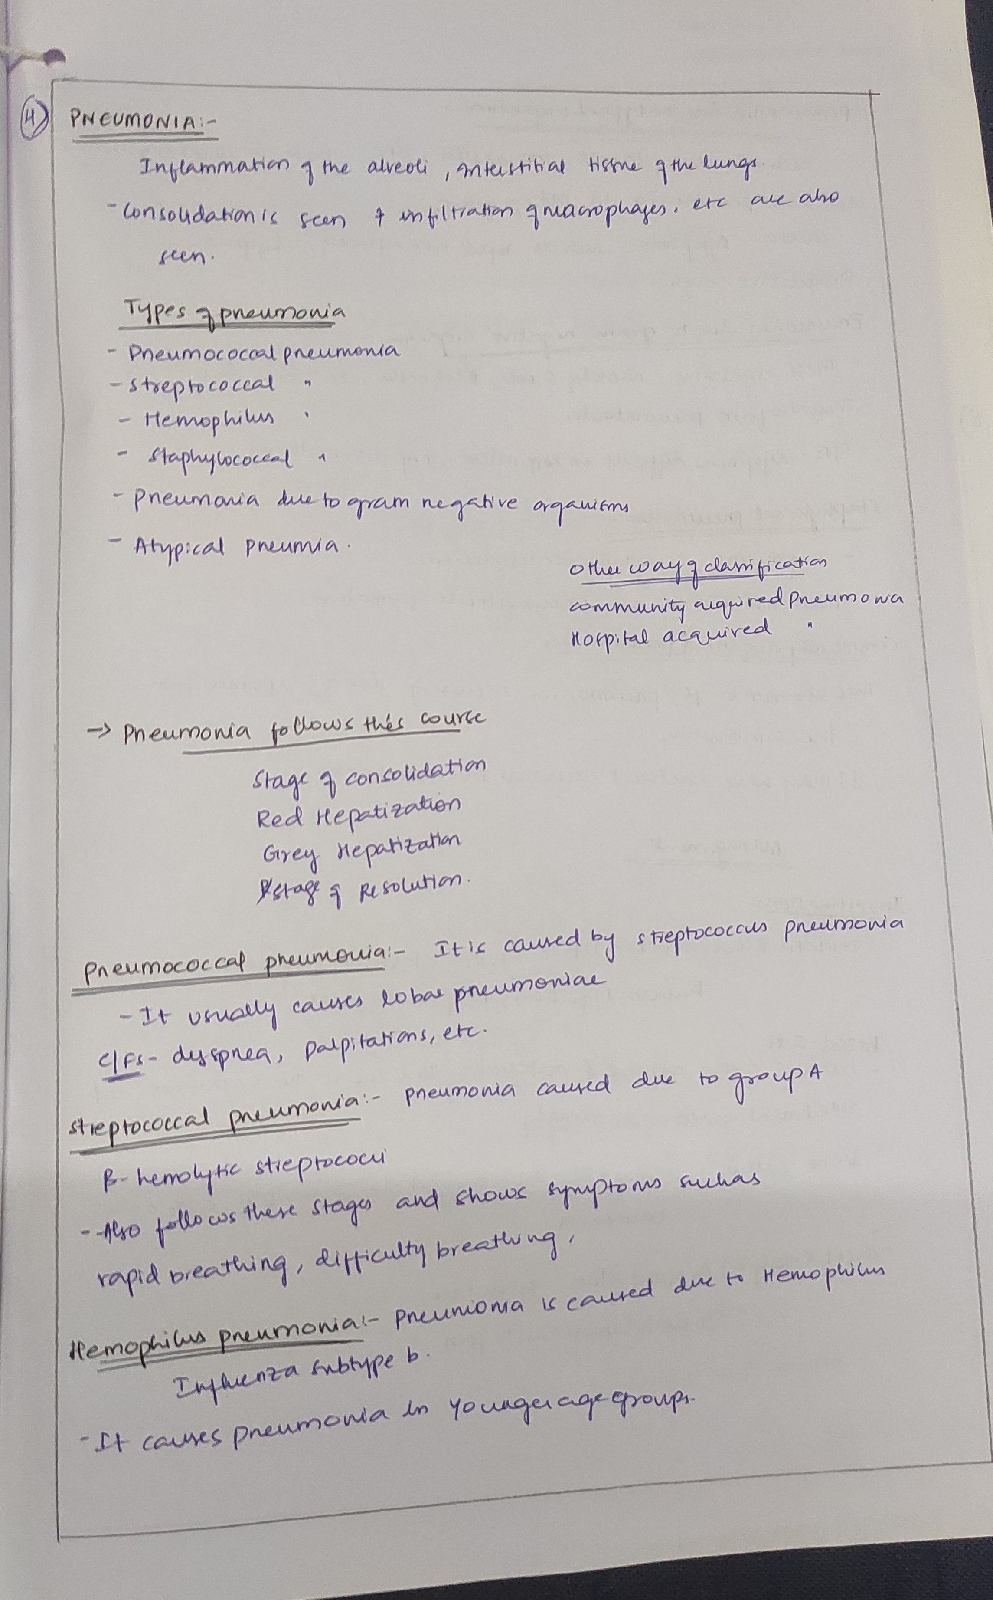 4
PNEUMONIA:-
Inflammation of the alveoli, interstitial tissue of the lungs.
- Consolidation is seen & infiltration of macrophages, etc are also
seen.
Types of pneumonia
- Pneumococcal pneumonia
- Streptococcal "
- Hemophilus "
- Staphylococcal "
- Pneumonia due to gram negative organisms
- Atypical pneumia.
Other way of classification
community acquired pneumonia
Hospital acquired "
→ Pneumonia follows this course
Stage of consolidation
Red Hepatization
Grey Hepatization
Stage of Resolution.
Pneumococcal pneumonia:- It is caused by streptococcus pneumonia
- It usually causes lobar pneumoniae
C/Fs - dyspnea, palpitations, etc.
Streptococcal pneumonia:- pneumonia caused due to group A
β-hemolytic streptococci
- Also follows these stages and shows symptoms such as
rapid breathing, difficulty breathing,
Hemophilus pneumonia:- Pneumonia is caused due to Hemophilus
Influenza subtype b.
- It causes pneumonia in younger age groups.